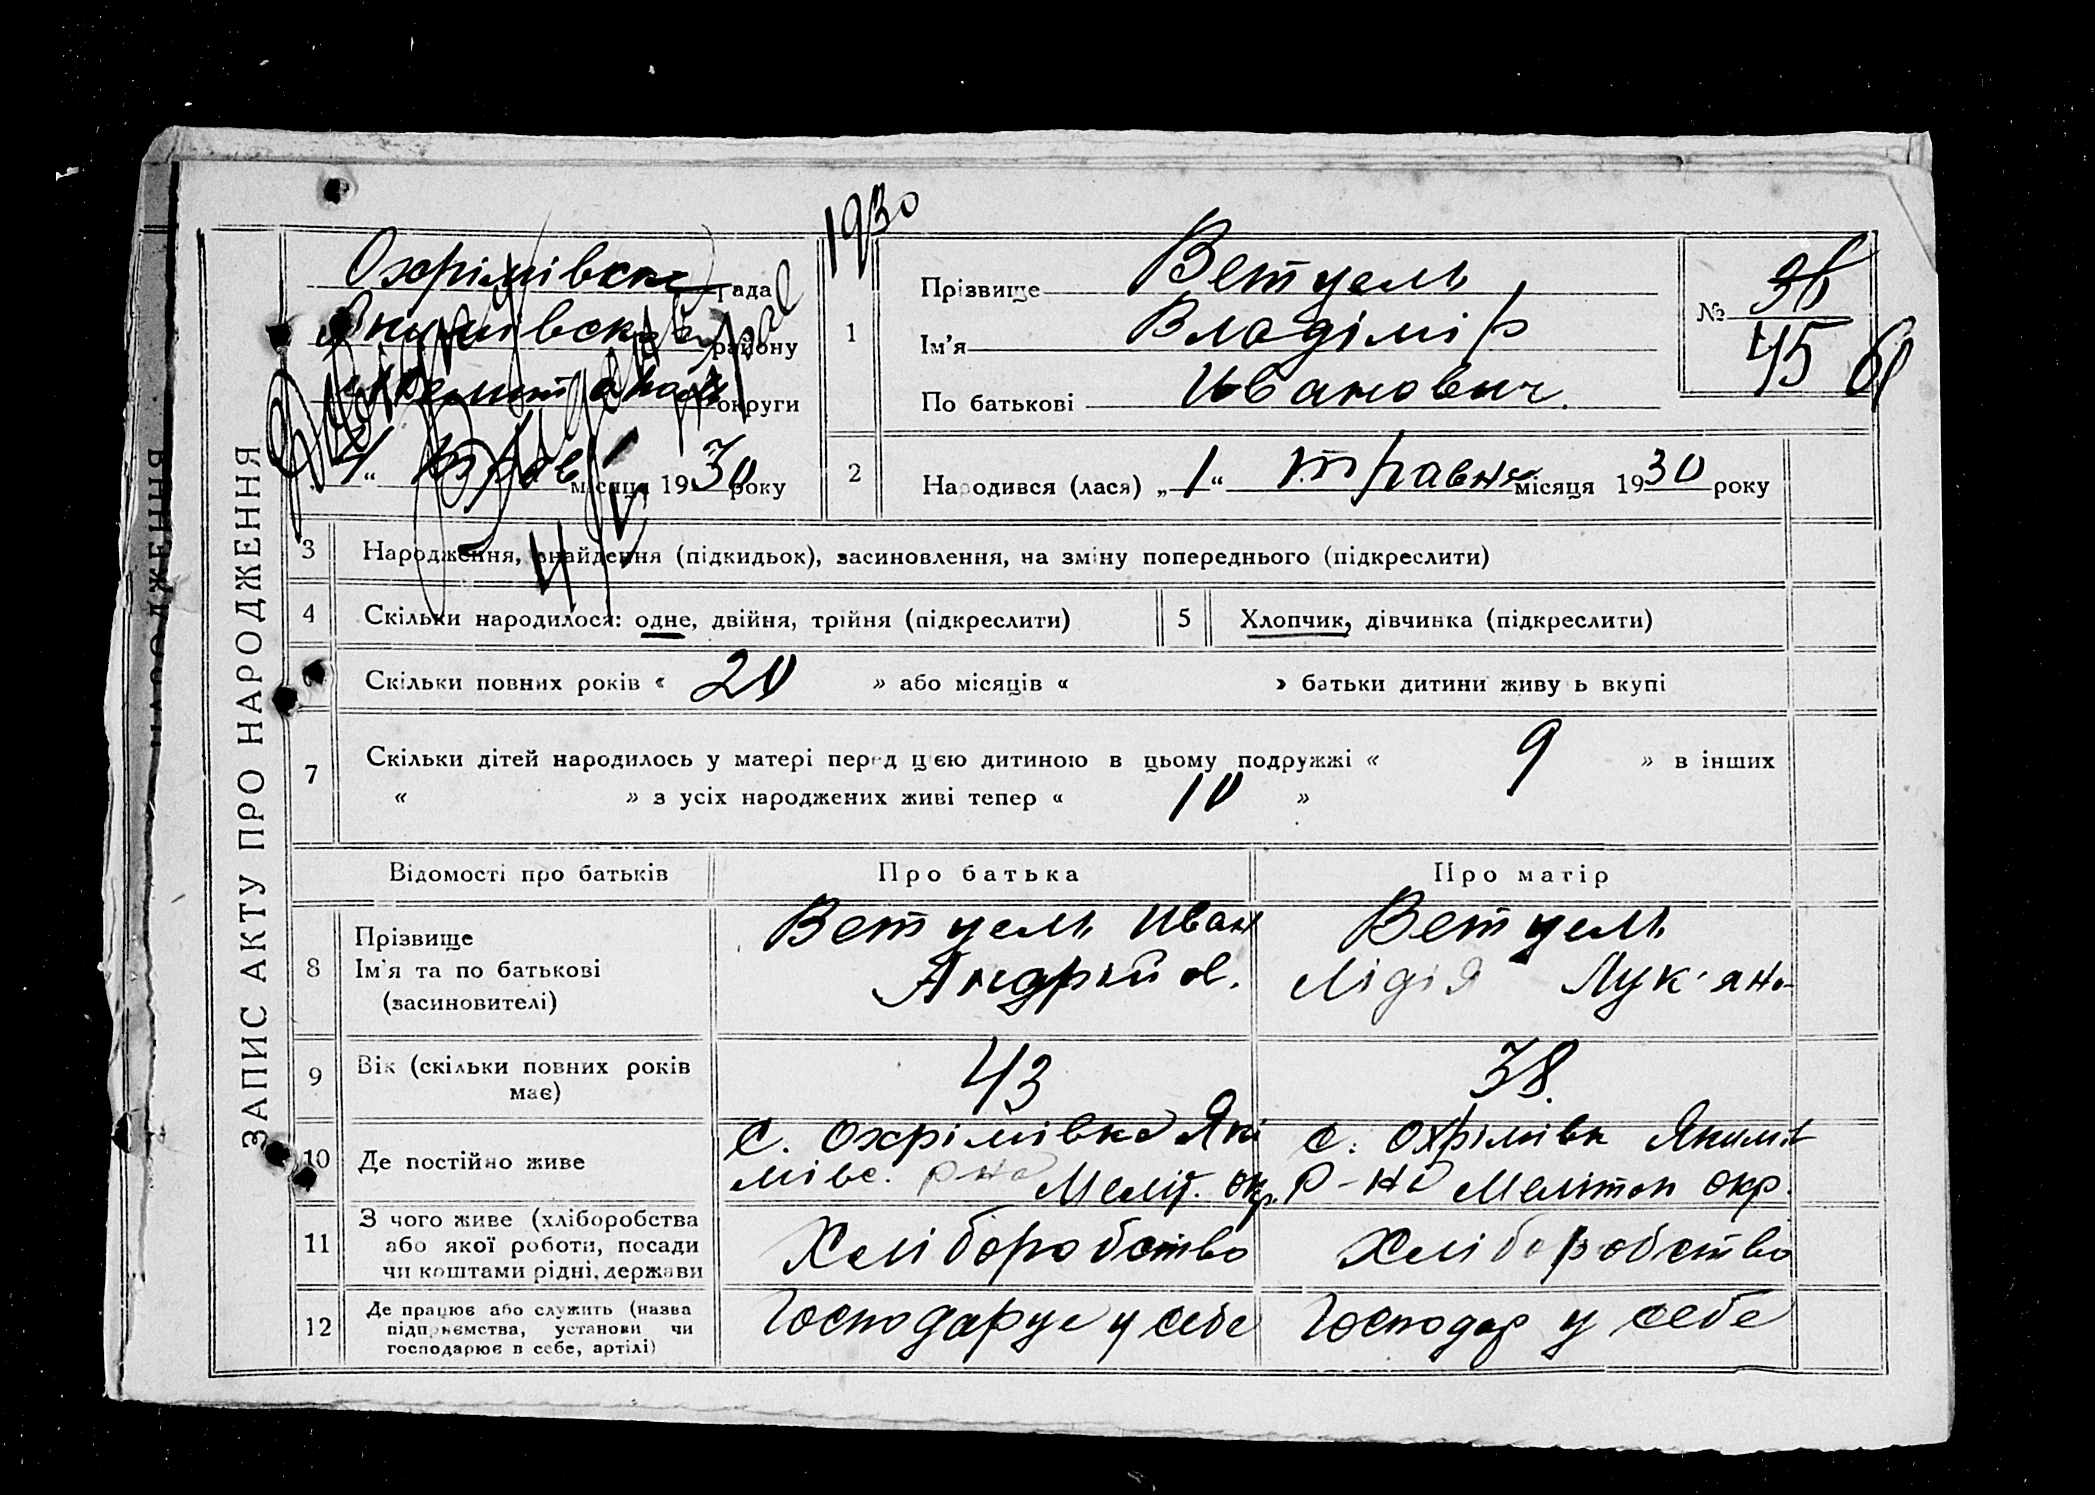 1930
ЗАПИС АКТУ ПРО НАРОДЖЕННЯ
Охрімівськ рада
Якимівськ району
Меліт округи
місяця 1930 року
1
Прізвище Ветцель
Ім'я Владімір
По батькові Иванович.
№ 36
45
2
Народився (лася) „1“ травня місяця 1930 року
3 Народження, знайдення (підкидьок), засиновлення, на зміну попереднього (підкреслити)
4 Скільки народилося: одне, двійня, трійня (підкреслити) 5 Хлопчик, дівчинка (підкреслити)
Скільки повних років « 20 » або місяців « » батьки дитини живуть вкупі
7 Скільки дітей народилось у матері перед цією дитиною в цьому подружжі « 9 » в інших
« » з усіх народжених живі тепер « 10 »
Відомості про батьків Про батька Про матір
8 Прізвище Ім'я та по батькові (засиновителі)
Ветцель Иван
Андрійов.
Ветцель
Лідія Лук'яно-
9 Вік (скільки повних років має) 43 38.
10 Де постійно живе
с. Охрімівка Які
мівс. р-на Меліт. окр.
с. Охрімівк Якимів
Р-на Мелітоп окр.
11 З чого живе (хліборобства
або якої роботи, посади
чи коштами рідні, держави
Хліборобство Хліборобство
12 Де працює або служить (назва
підприємства, установи чи
господарює в себе, артілі)
Господарує у себе Господар у себе